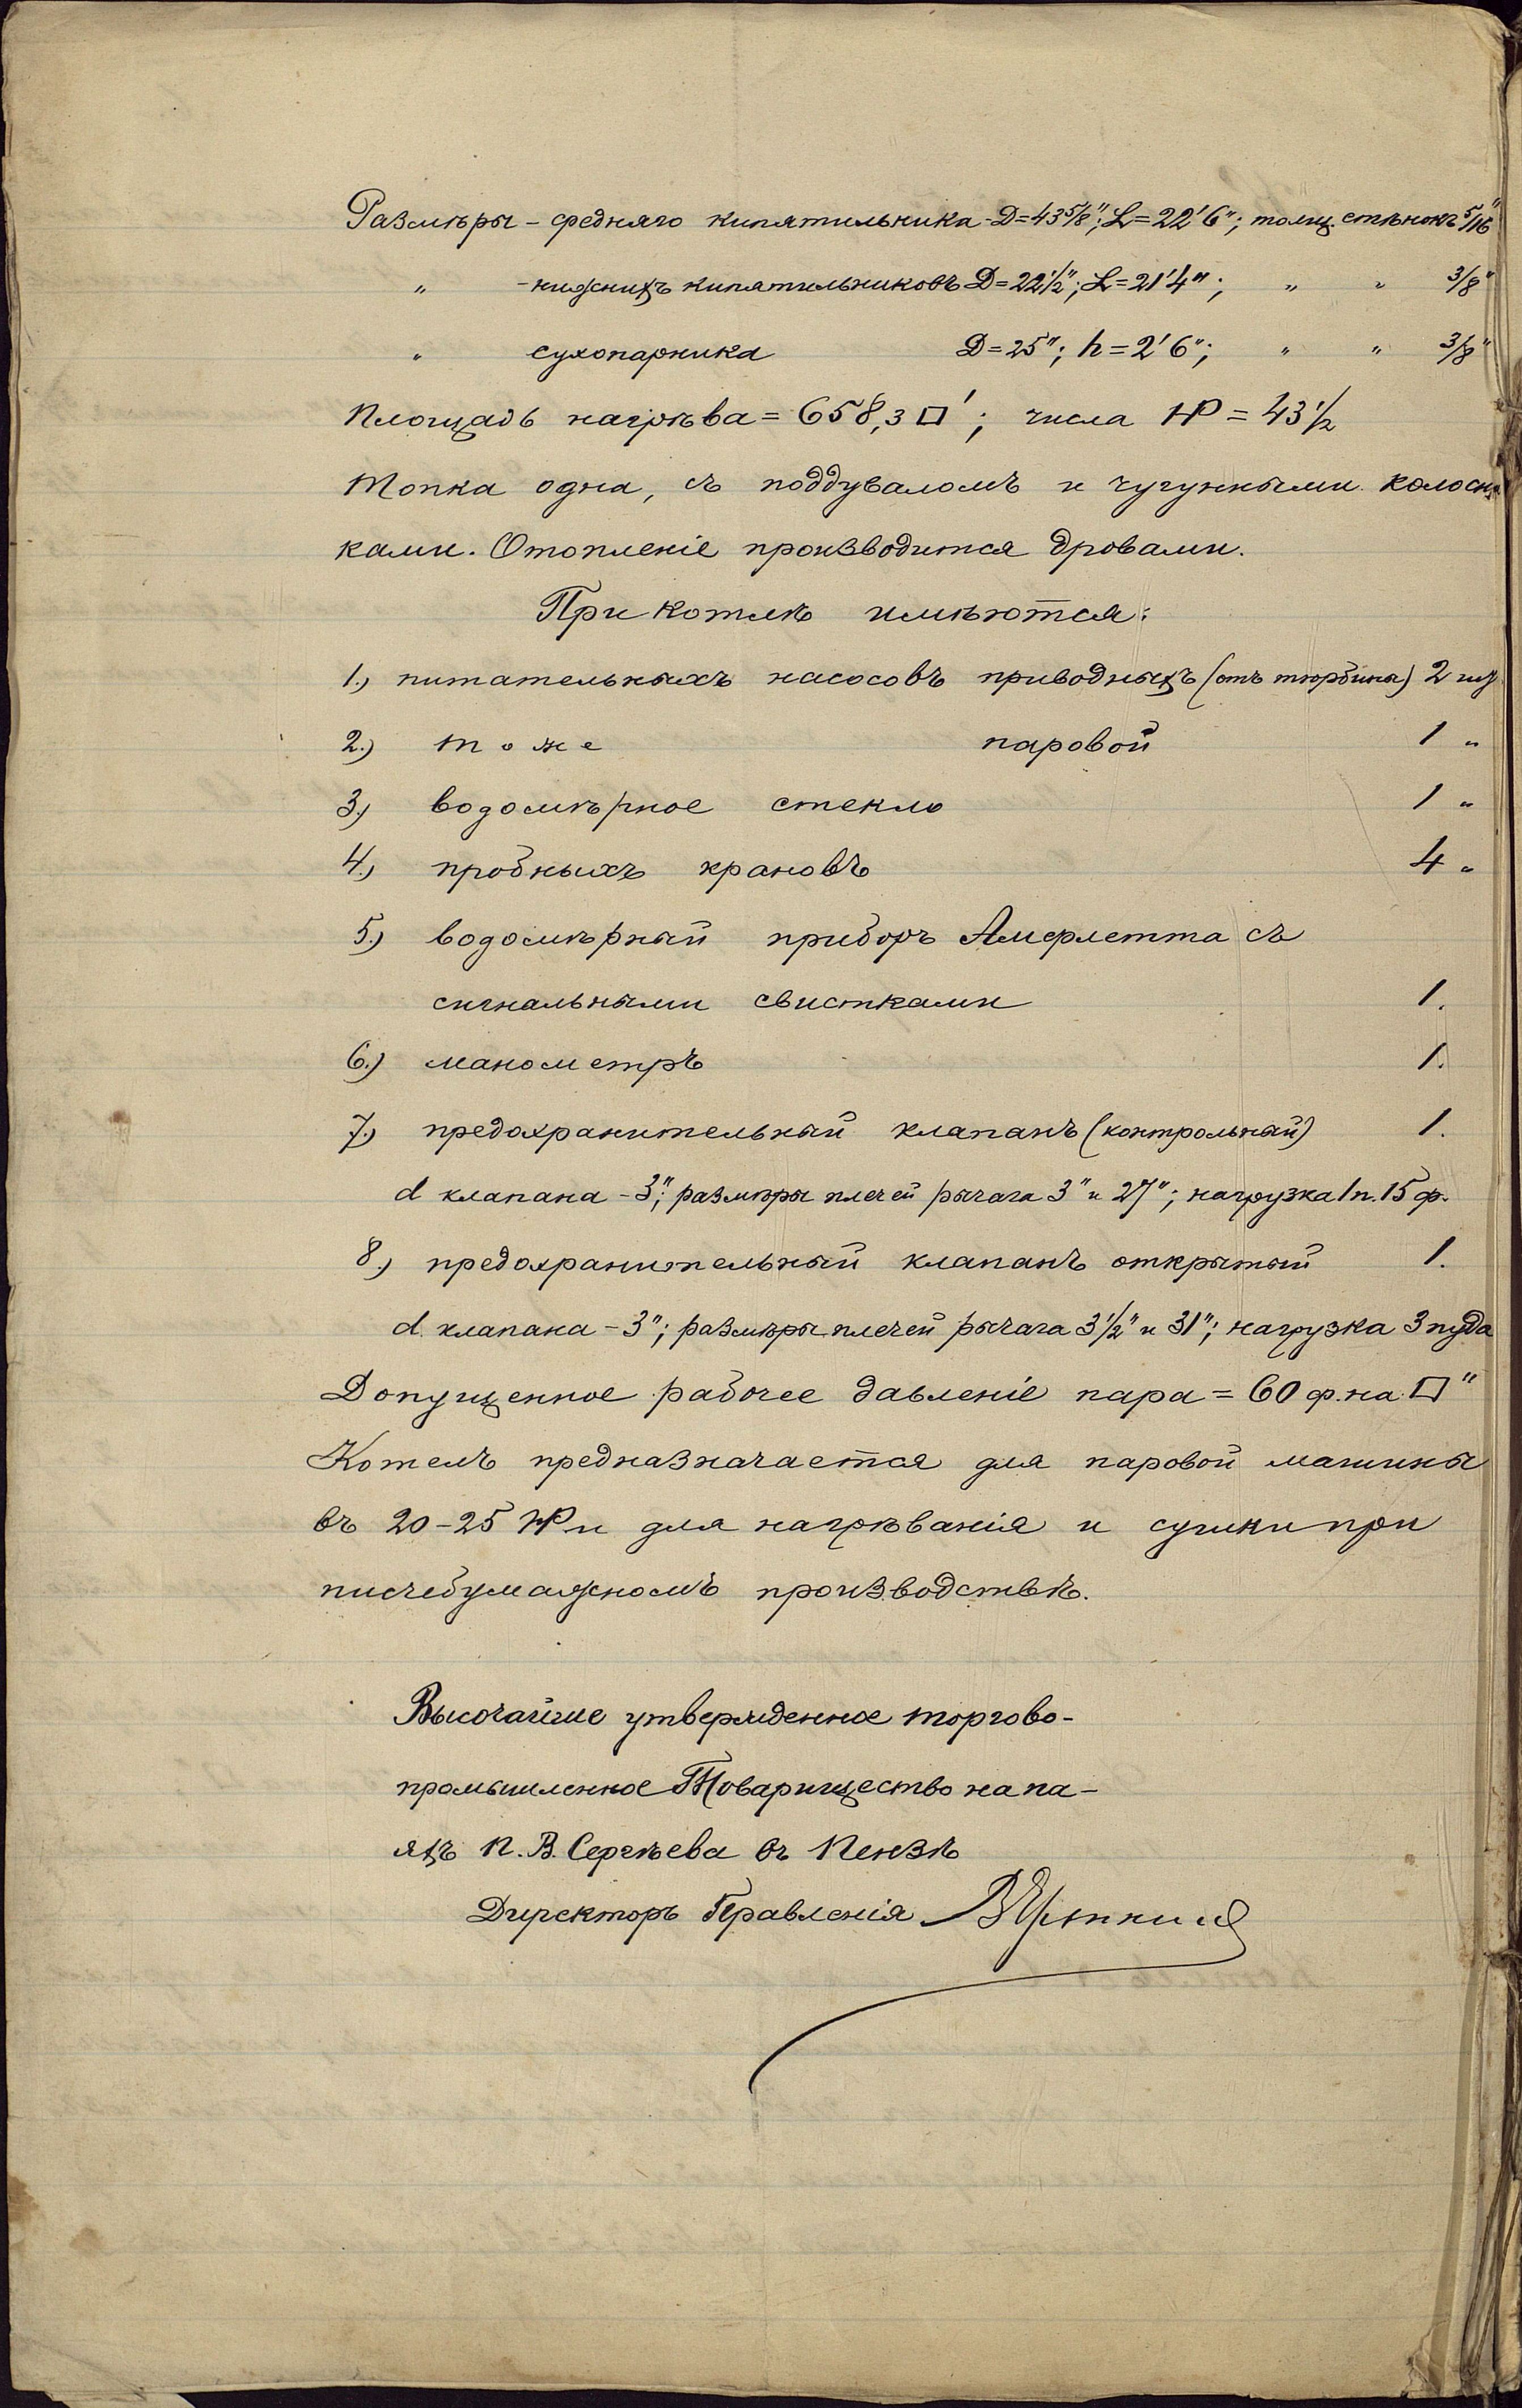 Размѣры - средняго кипятильника - D=43 5/8"; L=22'6"; толщ. стѣнокъ 5/16"
" - нижнихъ кипятильниковъ D=22 1/2"; L=21'4"; " " 3/8"
" сухопарника D=25"; h=2'6"; " " 3/8"
Площадь нагрѣва = 658,3 □'; числа HP = 43 1/2
Топка одна, съ поддуваломъ и чугунными колосни
ками. Отопленіе производится дровами.
При котлѣ имѣются:
1.) питательныхъ насосовъ приводныхъ (отъ тюрбины) 2 шт
2.) тоже паровой 1 "
3.) водомѣрное стекло 1 "
4.) пробныхъ крановъ 4 "
5.) водомѣрный приборъ Амерлетта съ
сигнальными свистками 1.
6.) манометръ 1.
7.) предохранительный клапанъ (контрольный) 1.
d клапана - 3"; размѣры плечей рычага 3" и 27"; нагрузка 1 п. 15 ф.
8.) предохранительный клапанъ открытый 1.
d. клапана - 3"; размѣры плечей рычага 3 1/2" и 31"; нагрузка 3 пуда
Допущенное рабочее давленіе пара = 60 ф. на □"
Котелъ предназначается для паровой машины
въ 20-25 HP и для нагрѣванія и сушки при
писчебумажномъ производствѣ.
Высочайше утвержденное торгово-
промышленное Товарищество на па-
яхъ П. В. Сергѣева въ Пензѣ
Директоръ Правленія